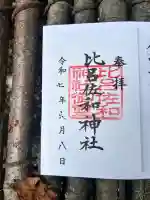 奉拝
比呂佐和神社
令和七年六月八日
比呂佐和